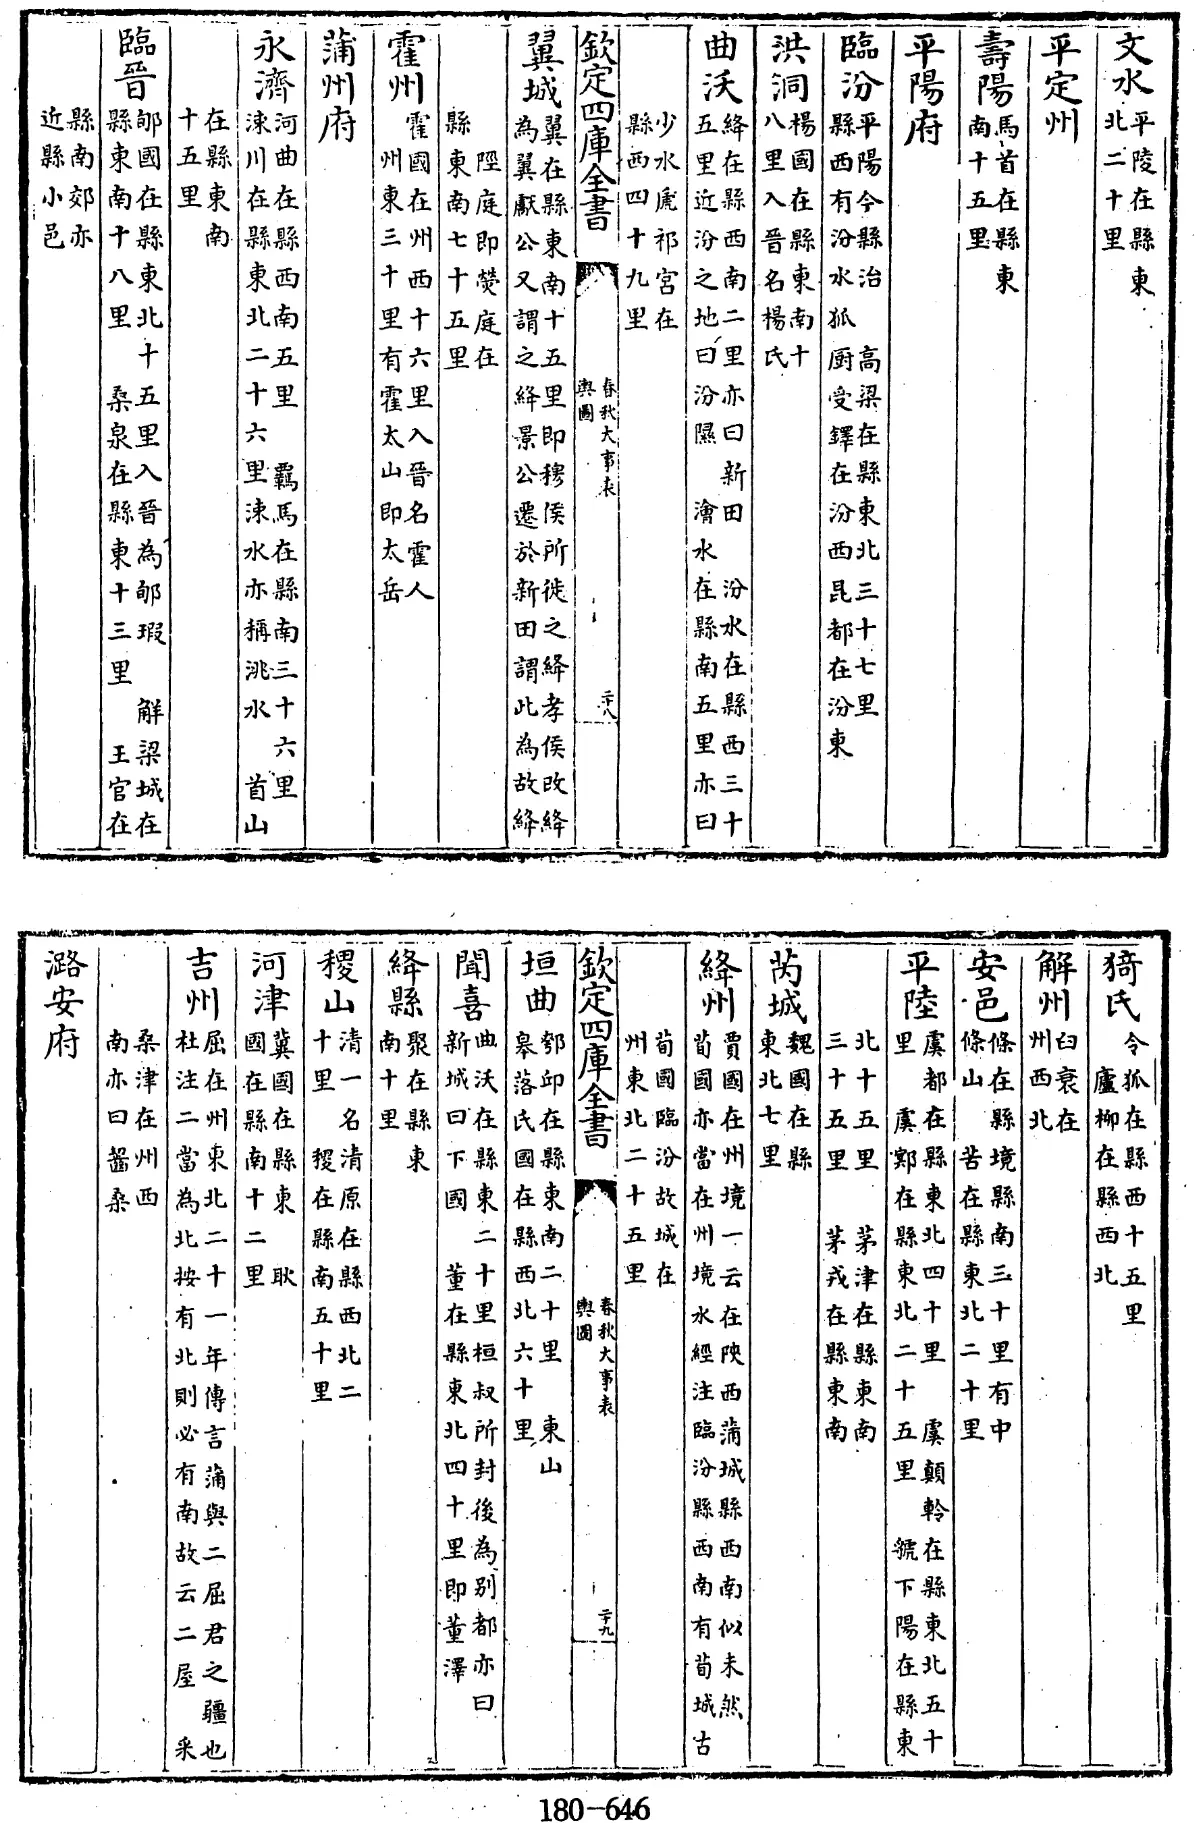 文水 平陵在縣東北二十里
平定州
壽陽 馬首在縣東南十五里
平陽府
臨汾 平陽今縣治 高梁在縣東北三十七里縣西有汾水狐厨受鐸在汾西昆都在汾東
洪洞 楊國在縣東南十八里入晉名楊氏
曲沃 絳在縣西南二里亦曰新田 汾水在縣西三十五里近汾之地曰汾隰 澮水在縣南五里亦曰
少水虒祁宮在縣西四十九里
欽定四庫全書 春秋大事表 輿圖 二十八
翼城 翼在縣東南十五里即穆侯所徙之絳孝侯改絳為翼獻公又謂之絳景公遷於新田謂此為故絳
陘庭即熒庭在縣東南七十五里
霍州 霍國在州西十六里入晉名霍人州東三十里有霍太山即太岳
蒲州府
永濟 河曲在縣西南五里 羈馬在縣南三十六里涑川在縣東北二十六里涑水亦稱洮水 首山
在縣東南十五里
臨晉 郇國在縣東北十五里入晉為郇瑕 解梁城在縣東南十八里 桑泉在縣東十三里 王官在
縣南郊亦近縣小邑
猗氏 令狐在縣西十五里 廬柳在縣西北
解州 臼衰在州西北
安邑 條在縣境縣南三十里有中條山 苦在縣東北二十里
平陸 虞都在縣東北四十里 虞顛軨在縣東北五十里 虞鄍在縣東北二十五里 虢下陽在縣東
北十五里 茅津在縣東南三十五里 茅戎在縣東南
芮城 魏國在縣東北七里
絳州 賈國在州境一云在陜西蒲城縣西南似未然荀國亦當在州境水經注臨汾縣西南有荀城古
荀國臨汾故城在州東北二十五里
欽定四庫全書 春秋大事表 輿圖 二十九
垣曲 鄈邱在縣東南二十里 東山皋落氏國在縣西北六十里
聞喜 曲沃在縣東二十里桓叔所封後為別都亦曰新城曰下國 董在縣東北四十里即董澤
絳縣 聚在縣東南十里
稷山 清一名清原在縣西北二十里 稷在縣南五十里
河津 冀國在縣東 耿國在縣南十二里
吉州 屈在州東北二十一年傳言蒲與二屈君之疆也杜注二當為北按有北則必有南故云二屋 采
桑津在州西南亦曰齧桑
潞安府
180-646